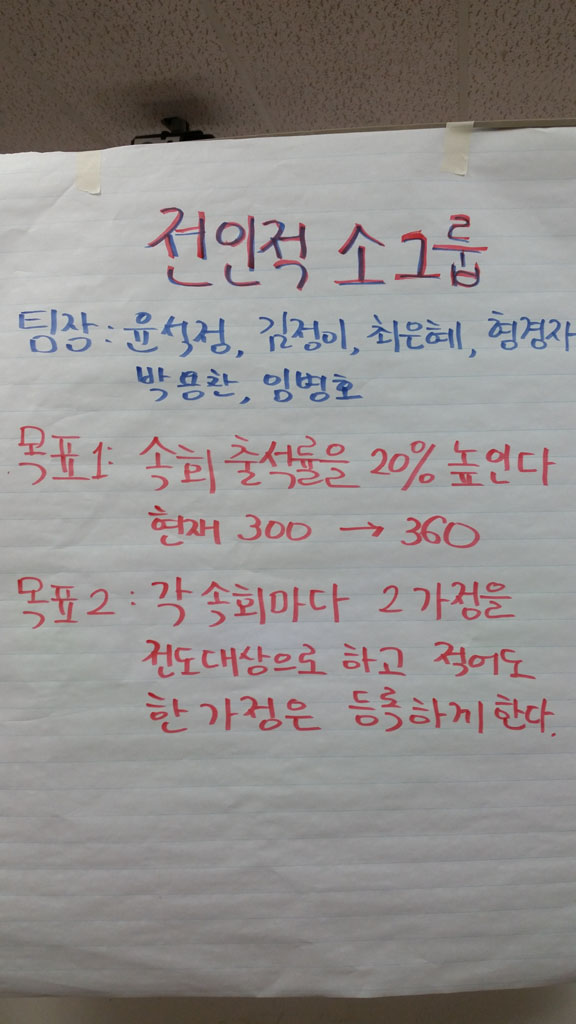 전인적 소그룹
팀장 : 윤석정, 김정이, 최은혜, 형경자
박용찬, 임병호
목표1: 속회 출석률을 20% 높인다
현재 300 → 360
목표2 : 각 속회마다 2가정을
전도대상으로 하고 적어도
한 가정은 등록하게 한다.